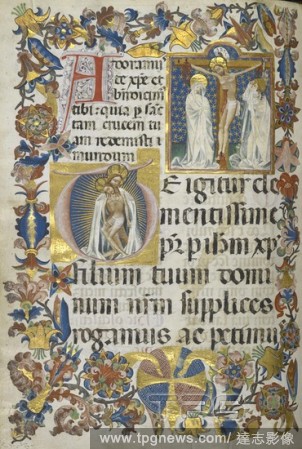 Adoramus
te xp̄e et
b̄n̄dicim̄
tibi: quia p̄ sāc
tam crucem tu
am redemisti
mundum
Te igitur cle
mentissime
p̄r̄ p ih̄m xp̄m
filium tuum domi
num nr̄m supplices
rogamus ac petimu
TPG
www.tpgnews.com/達志影像